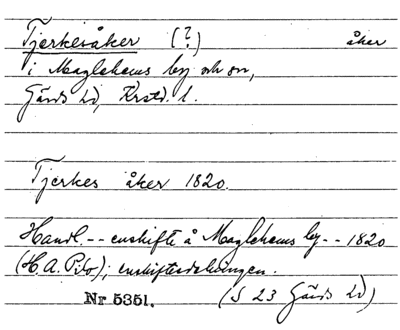 Tjerkesåker (?) åker
i Maglehems by och sn,
Gärds hd, Krstd. l.
Tjerkes åker 1820.
Handl. -- enskifte å Maglehems by -- 1820
(H. A. Pilo); enskiftesdelningen.
Nr 5351. (S 23 Gärds hd)